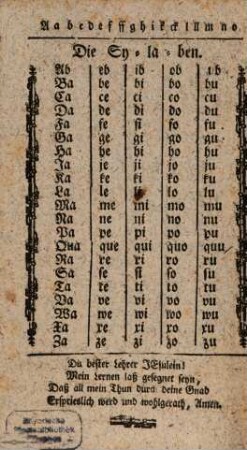 A a b c d e f ff g h i k ck l ll m n o
Die Sy-la-ben.
Ab eb ib ob ub
Ba be bi bo bu
Ca ce ci co cu
Da de di do du
Fa fe fi fo fu
Ga ge gi go gu
Ha he hi ho hu
Ja je ji jo ju
Ka ke ki ko ku
La le li lo lu
Ma me mi mo mu
Na ne ni no nu
Pa pe pi po pu
Qua que qui quo quu
Ra re ri ro ru
Sa ſe ſi ſo ſu
Ta te ti to tu
Va ve vi vo vu
Wa we wi wo wu
Xa xe xi xo xu
Za ze zi zo zu
Du beſter Lehrer JEſulein!
Mein Lernen laß geſegnet ſeyn,
Daß all mein Thun durch deine Gnad
Erſprieslich werd und wohlgerath, Amen.
Bayerische
Staatsbibliothek
München